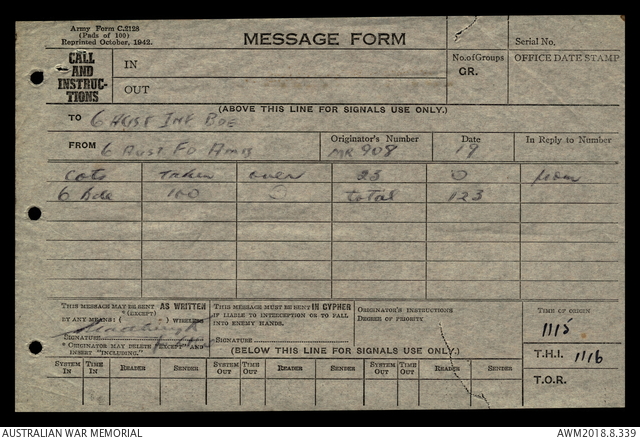 Army Form C.2128
(Pads of 100)
Reprinted October, 1942.
MESSAGE FORM
Serial No.
CALL AND INSTRUC-TIONS
IN
OUT
No. of Groups
GR.
OFFICE DATE STAMP
(ABOVE THIS LINE FOR SIGNALS USE ONLY.)
TO 6 Aust Inf Bde
FROM 6 Aust Fd Amb
Originator's Number
MR 908
Date
19
In Reply to Number
cots taken over 23 0 from
6 bde 100 0 total 123
THIS MESSAGE MAY BE SENT AS WRITTEN
*(EXCEPT)
BY ANY MEANS: ( ) WIRELESS
SIGNATURE
* ORIGINATOR MAY DELETE "EXCEPT" AND
INSERT "INCLUDING."
THIS MESSAGE MUST BE SENT IN CYPHER
IF LIABLE TO INTERCEPTION OR TO FALL
INTO ENEMY HANDS.
SIGNATURE
ORIGINATOR'S INSTRUCTIONS
DEGREE OF PRIORITY
TIME OF ORIGIN
1115
T.H.I. 1116
T.O.R.
(BELOW THIS LINE FOR SIGNALS USE ONLY.)
SYSTEM IN TIME IN READER SENDER SYSTEM OUT TIME OUT READER SENDER SYSTEM OUT TIME OUT READER SENDER
AUSTRALIAN WAR MEMORIAL
AWM2018.8.339